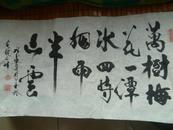 萬樹梅
花一潭
水四時
烟雨
半
山雲